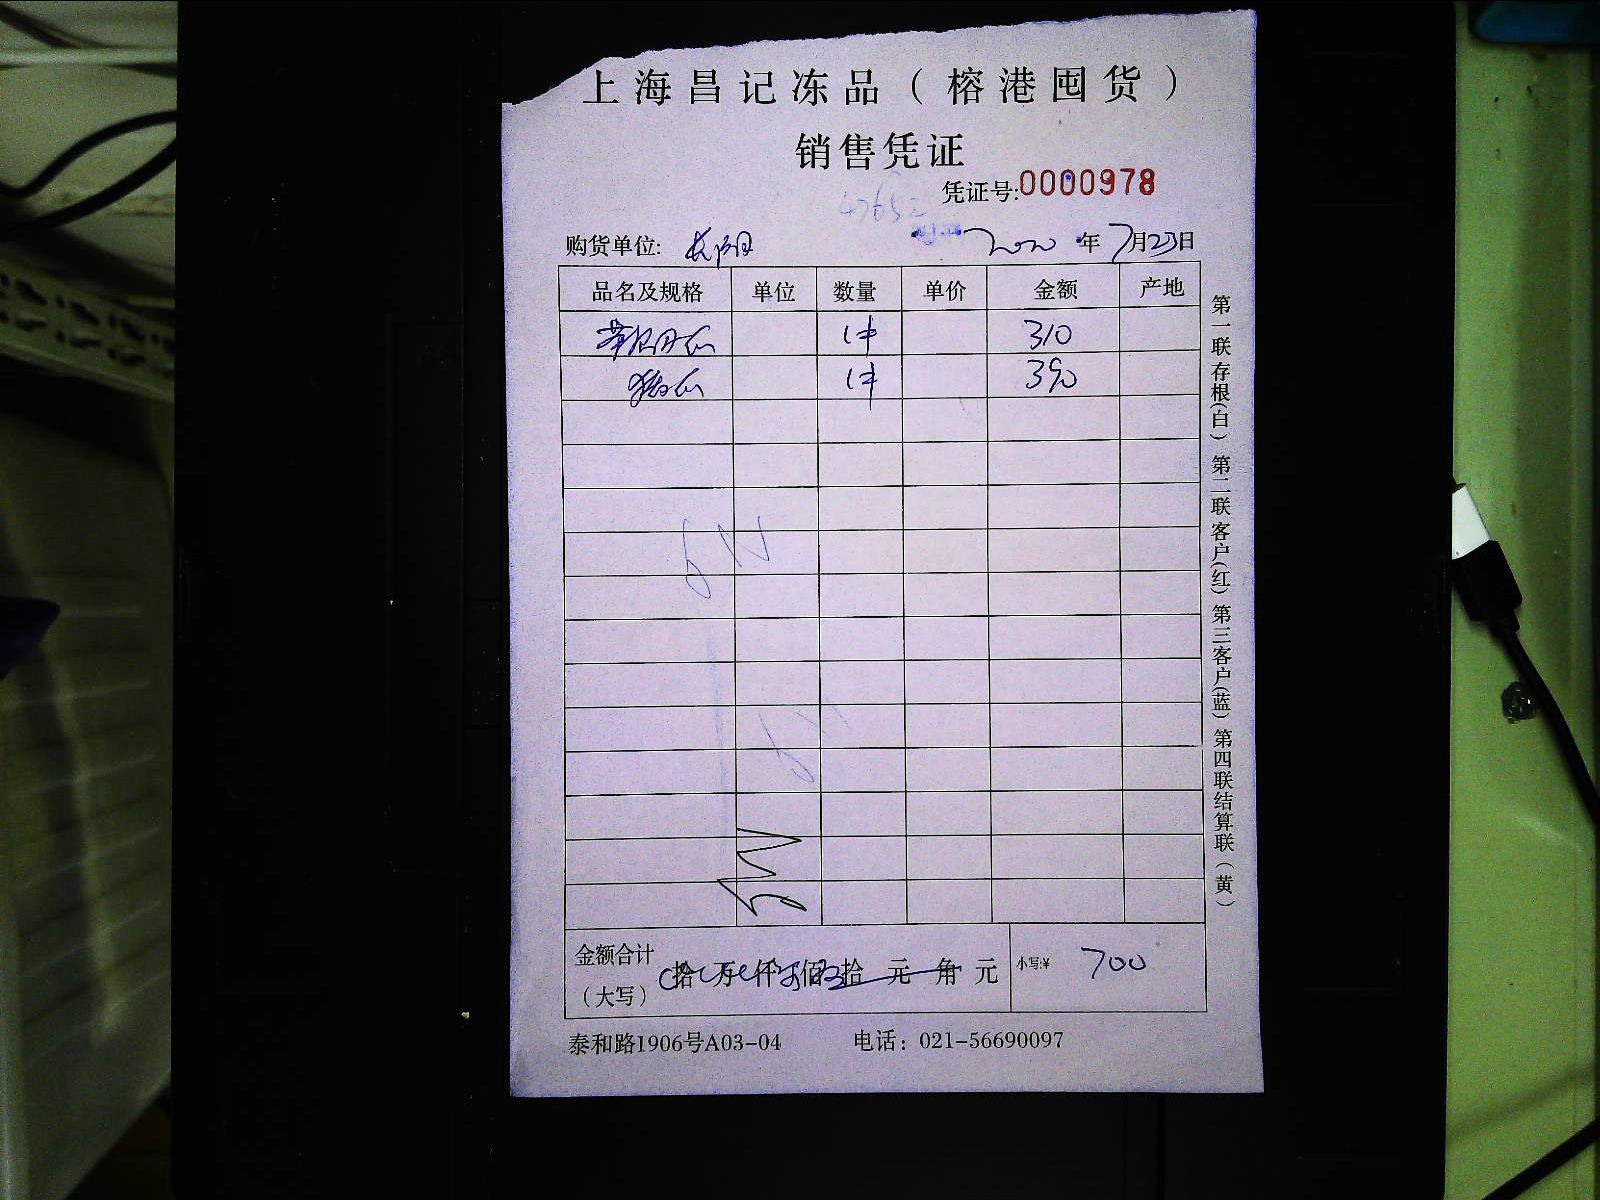 上海昌记冻品（榕港囤货）
销售凭证
凭证号:0000978
购货单位: 长阳 2020年7月23日
品名及规格 单位 数量 单价 金额 产地
1件 310
1件 390
金额合计（大写） 拾 万 仟 佰 拾 元 角 元 小写:¥ 700
泰和路1906号A03-04 电话：021-56690097
第一联存根(白) 第二联客户(红) 第三客户(蓝) 第四联结算联(黄)